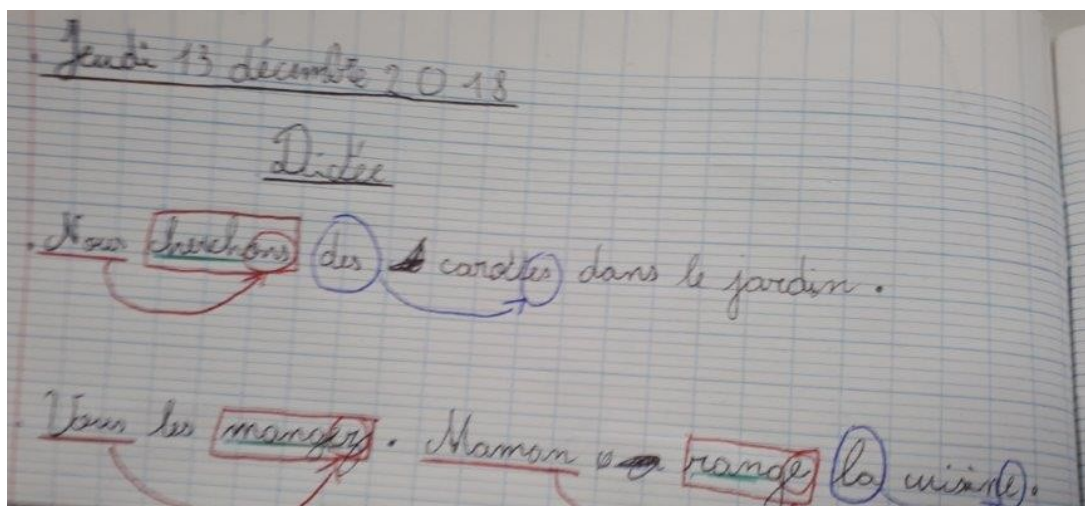 Jeudi 13 décembre 2018
Dictée
Nous cherchons des carottes dans le jardin.
Vous les mangez. Maman range la cuisine.